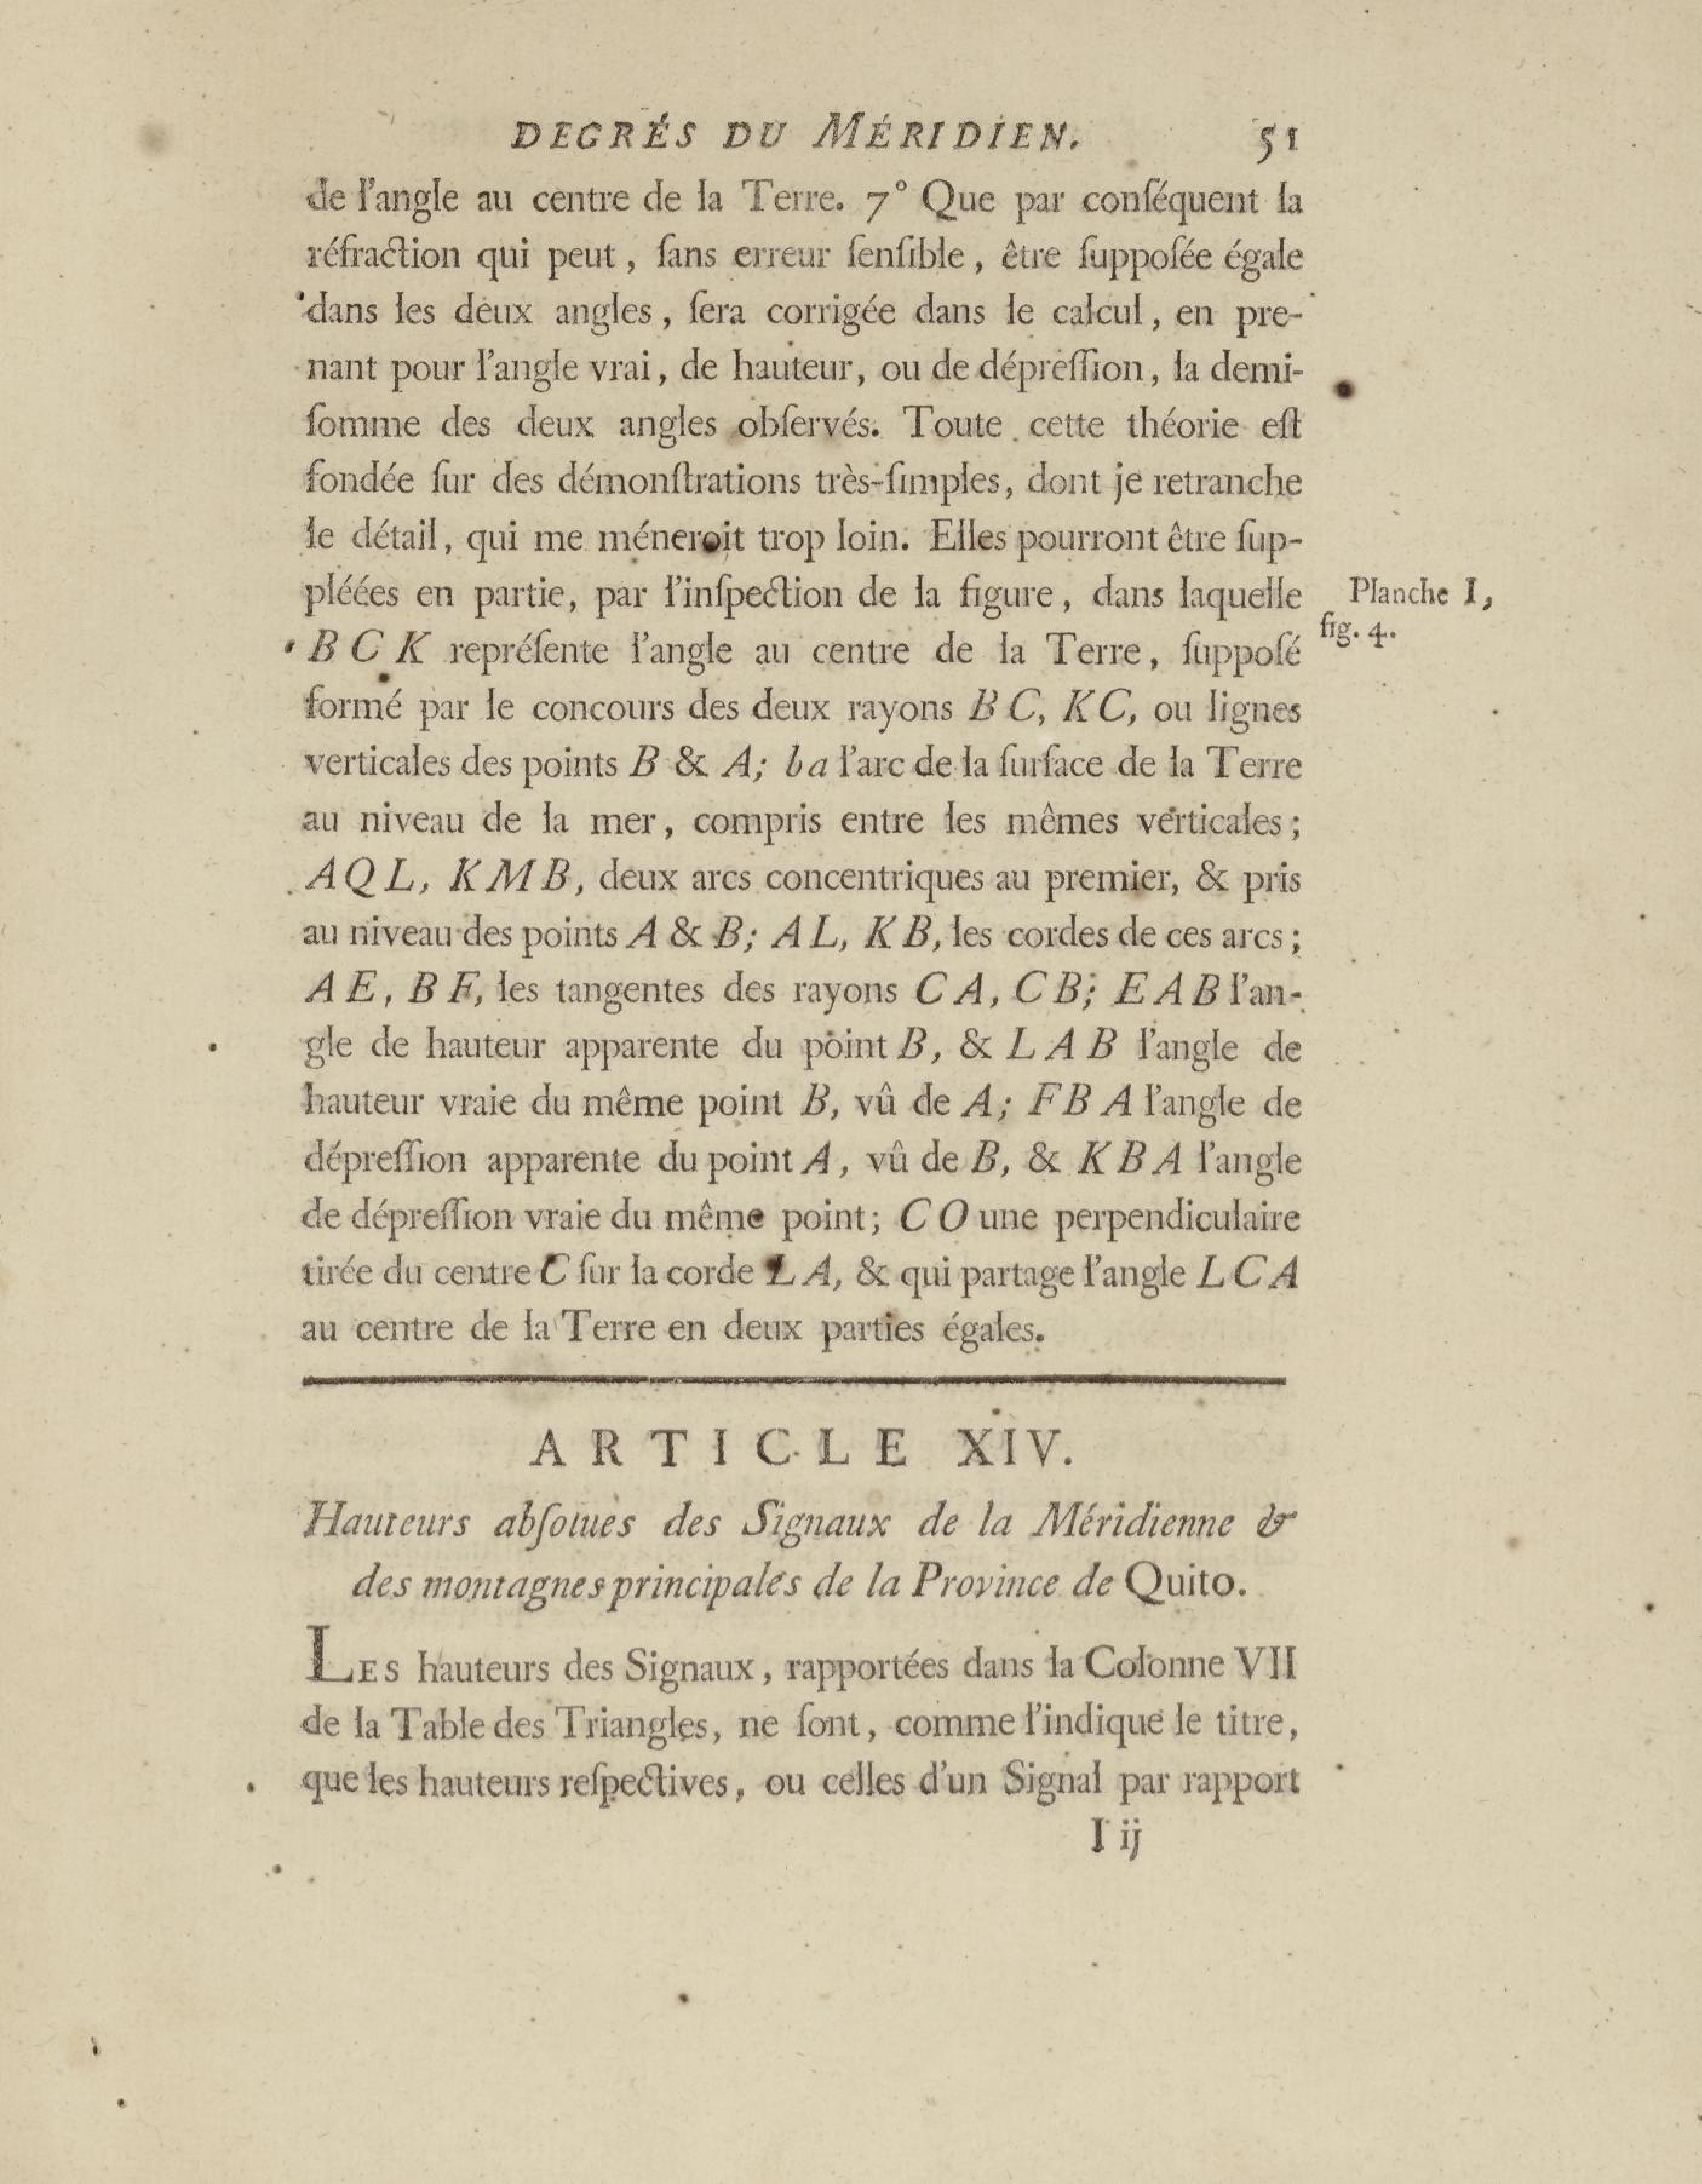 DEGRÉS DU MÉRIDIEN. 51
de l'angle au centre de la Terre. 7° Que par conſéquent la
réfraction qui peut, ſans erreur ſenſible, être ſuppoſée égale
dans les deux angles, ſera corrigée dans le calcul, en pre-
nant pour l'angle vrai, de hauteur, ou de dépreſſion, la demi-
ſomme des deux angles obſervés. Toute cette théorie eſt
fondée ſur des démonſtrations très-ſimples, dont je retranche
le détail, qui me méneroit trop loin. Elles pourront être ſup-
pléées en partie, par l'inſpection de la figure, dans laquelle
Planche I,
fig. 4.
B C K repréſente l'angle au centre de la Terre, ſuppoſé
formé par le concours des deux rayons B C, K C, ou lignes
verticales des points B & A; b a l'arc de la ſurface de la Terre
au niveau de la mer, compris entre les mêmes verticales;
A Q L, K M B, deux arcs concentriques au premier, & pris
au niveau des points A & B; A L, K B, les cordes de ces arcs;
A E, B F, les tangentes des rayons C A, C B; E A B l'an-
gle de hauteur apparente du point B, & L A B l'angle de
hauteur vraie du même point B, vû de A; F B A l'angle de
dépreſſion apparente du point A, vû de B, & K B A l'angle
de dépreſſion vraie du même point; C O une perpendiculaire
tirée du centre C ſur la corde L A, & qui partage l'angle L C A
au centre de la Terre en deux parties égales.
ARTICLE XIV.
Hauteurs abſolues des Signaux de la Méridienne &
des montagnes principales de la Province de Quito.
LES hauteurs des Signaux, rapportées dans la Colonne VII
de la Table des Triangles, ne ſont, comme l'indique le titre,
que les hauteurs reſpectives, ou celles d'un Signal par rapport
I ij